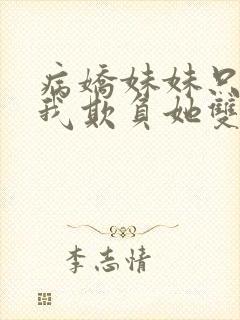 病嬌妹妹只
我欺負她雙
李志情